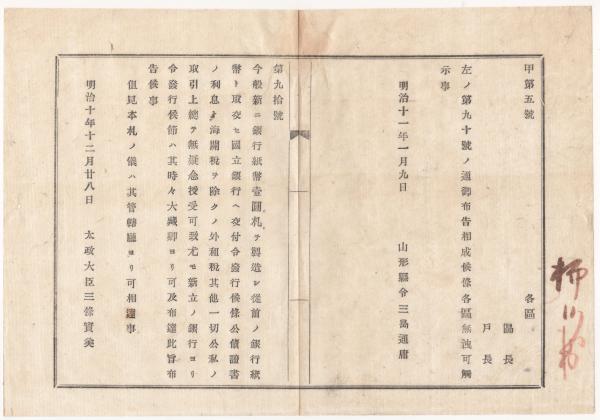 甲第五號
各區
區長
戸長
左ノ第九十號ノ通御布告相成候條各區無洩可觸
示事
明治十一年一月九日
山形縣令三島通庸
第九拾號
今般新ニ銀行紙幣壹圓札ヲ製造シ從前ノ銀行紙
幣ト取交セ國立銀行ヘ交付令發行候條公債證書
ノ利息及海關税ヲ除クノ外租税其他一切公私ノ
取引上總テ無疑念授受可致尤モ新立ノ銀行ヨリ
令發行候節ハ其時々大藏卿ヨリ可及布達此旨布
告候事
但見本札ノ儀ハ其管轄廳ヨリ可相達事
明治十年十二月廿八日
太政大臣三條實美